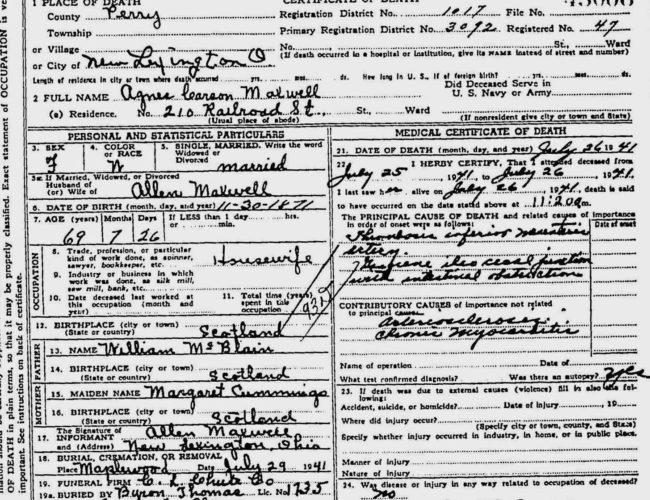 1 PLACE OF DEATH
CERTIFICATE OF DEATH
County Perry
Registration District No. 1017 File No.
Township
Primary Registration District No. 3092 Registered No. 47
or Village
No. St., Ward
or City of New Lexington O
(If death occurred in a hospital or institution, give its NAME instead of street and number)
Length of residence in city or town where death occurred yrs. mos. ds. How long in U. S., if of foreign birth? yrs. mos. ds.
2 FULL NAME Agnes Carson Maxwell
Did Deceased Serve in
U. S. Navy or Army
(a) Residence. No. 210 Railroad St., St., Ward
(Usual place of abode)
(If nonresident give city or town and State)
PERSONAL AND STATISTICAL PARTICULARS
3. SEX
F
4. COLOR
or RACE
W
5. SINGLE, MARRIED, Write the word
Widowed or
Divorced
married
5a If Married, Widowed, or Divorced
Husband of
(or) Wife of Allen Maxwell
6. DATE OF BIRTH (month, day, and year) 11-30-1871
7. AGE (years) Months Days
If LESS than 1 day hrs.
or min.
69 7 26
OCCUPATION
8. Trade, profession, or particular
kind of work done, as spinner,
sawyer, bookkeeper, etc.
Housewife
9. Industry or business in which
work was done, as silk mill,
saw mill, bank, etc.
10. Date deceased last worked at
this occupation (month and
year)
11. Total time (years)
spent in this
occupation
12. BIRTHPLACE (city or town)
(State or country) Scotland
FATHER
13. NAME William McBlain
14. BIRTHPLACE (city or town)
(State or country) Scotland
MOTHER
15. MAIDEN NAME Margaret Cummings
16. BIRTHPLACE (city or town)
(State or country) Scotland
17. The Signature of
INFORMANT Allen Maxwell
and (Address) New Lexington Ohio
18. BURIAL, CREMATION, OR REMOVAL
Place Maplewood Date July 29 1941
19. FUNERAL FIRM C. L. Chute Co
19a. BURIED BY Byron Thomas Lic. No. 1735
MEDICAL CERTIFICATE OF DEATH
21. DATE OF DEATH (month, day, and year) July 26 1941
22. I HERBY CERTIFY, That I attended deceased from
July 25, 1941, to July 26, 1941.
I last saw her alive on July 26, 1941, death is said
to have occurred on the date stated above at 11:20 a m.
The PRINCIPAL CAUSE OF DEATH and related causes of importance
in order of onset were as follows:
Date of onset
Thrombosis inferior mesenteric
artery
Gangrene ileo cecal junction
with intestinal obstruction
CONTRIBUTORY CAUSES of importance not related
to principal cause:
Arteriosclerosis
chronic myocarditis
Name of operation Date of
What test confirmed diagnosis? Was there an autopsy? yes
23. If death was due to external causes (violence) fill in also the fol-
lowing:
Accident, suicide, or homicide? Date of injury 19
Where did injury occur?
(Specify city or town, county, and State)
Specify whether injury occurred in industry, in home, or in public place.
Manner of injury
Nature of injury
24. Was disease or injury in any way related to occupation of deceased?
no
OF DEATH in plain terms, so that it may be properly classified. Exact statement of OCCUPATION is ve
important. See instructions on back of certificate.